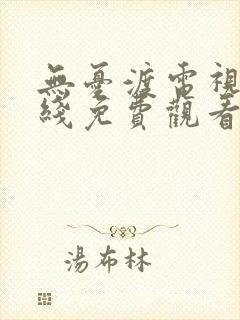 無憂渡電視
綫免費觀看
湯布林